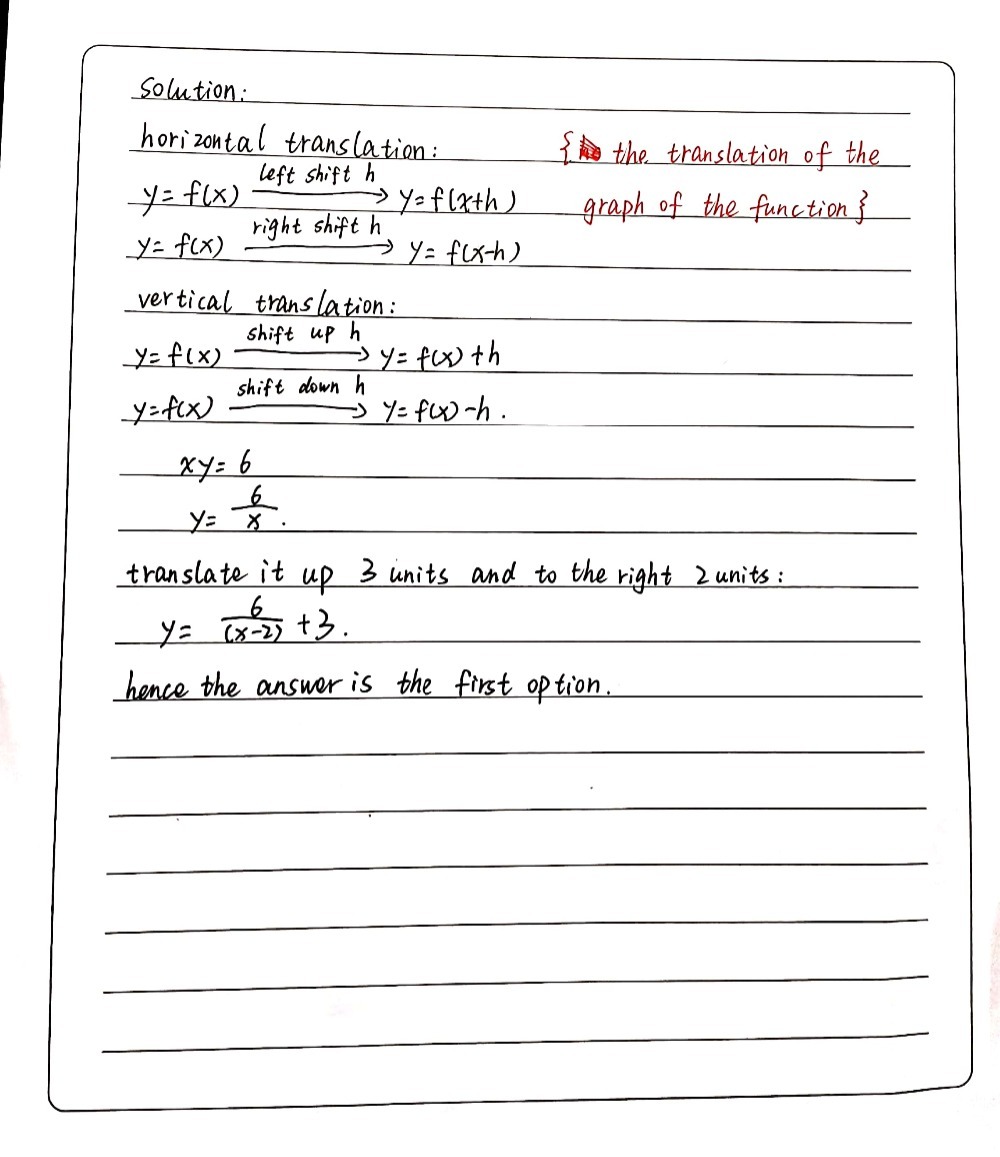 Solution:
horizontal translation:
{ the translation of the
graph of the function }
y = f(x) left shift h → y = f(x+h)
y = f(x) right shift h → y = f(x-h)
vertical translation:
y = f(x) shift up h → y = f(x) + h
y = f(x) shift down h → y = f(x) - h.
xy = 6
y = 6/x.
translate it up 3 units and to the right 2 units:
y = 6/(x-2) + 3.
hence the answer is the first option.